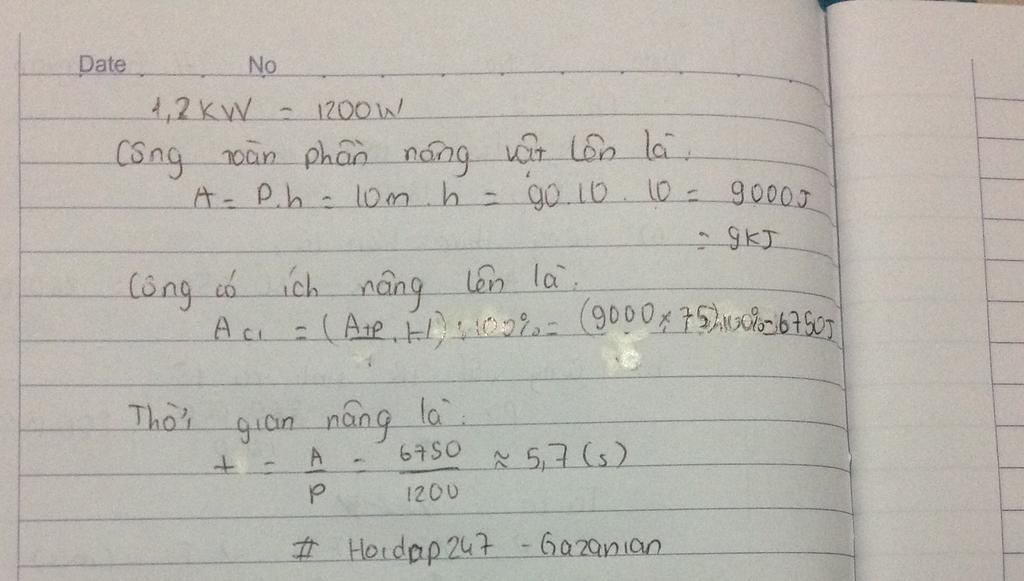 Date No
1,2KW = 1200W
Công toàn phần nâng vật lên là:
A = P.h = 10m.h = 90.10.10 = 9000J
= 9KJ
Công có ích nâng lên là:
Aci = (Atp.H):100% = (9000×75):100%=6750J
Thời gian nâng là:
t = A/P = 6750/1200 ≈ 5,7 (s)
# Hoidap247 - Gazanian